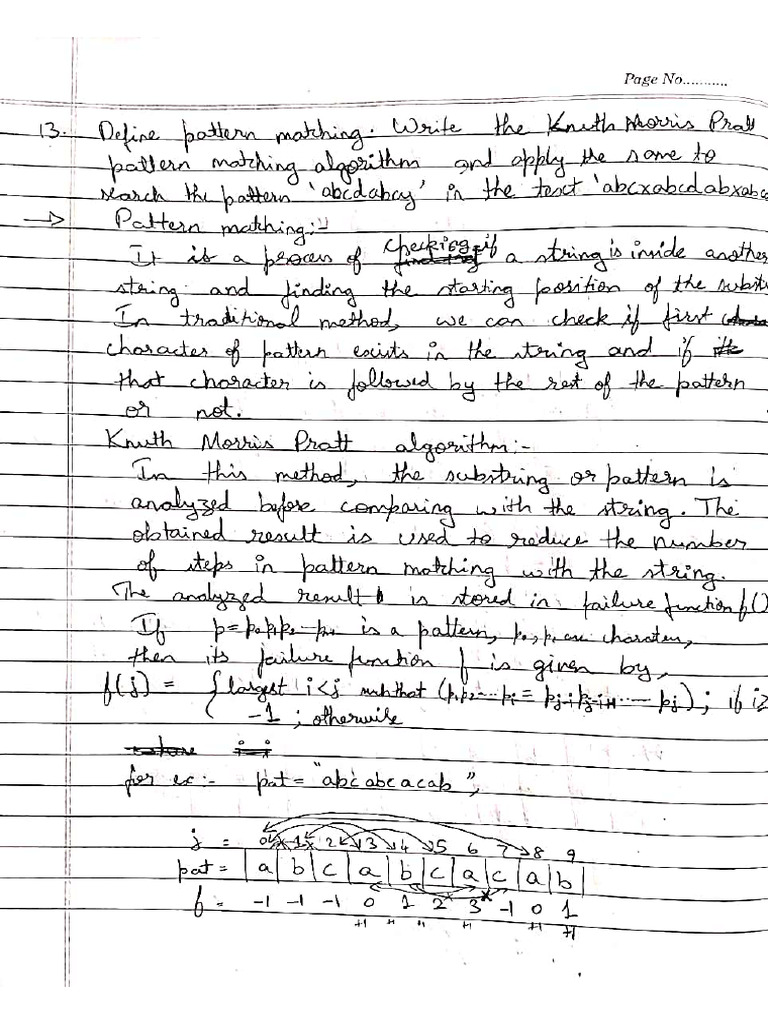 Page No...........
13. Define pattern matching. Write the Knuth Morris Pratt
pattern matching algorithm and apply the same to
search the pattern 'abcdabcy' in the text 'abcxabcdabxabc
→ Pattern matching:-
It is a process of checking if a string is inside another
string and finding the starting position of the substr
In traditional method, we can check if first
character of pattern exists in the string and if
that character is followed by the rest of the pattern
or not.
Knuth Morris Pratt algorithm:-
In this method, the substring or pattern is
analyzed before comparing with the string. The
obtained result is used to reduce the number
of steps in pattern matching with the string.
The analyzed result is stored in failure function f()
If is a pattern,
then its failure function f is given by,
f(j) = { largest i<j such that ; if
-1 ; otherwise
for ex:- pat = "abcabcacab",
j = 0 1 2 3 4 5 6 7 8 9
pat = | a | b | c | a | b | c | a | c | a | b |
f = -1 -1 -1 0 1 2 3 -1 0 1
+1 " " +1 +1 +1